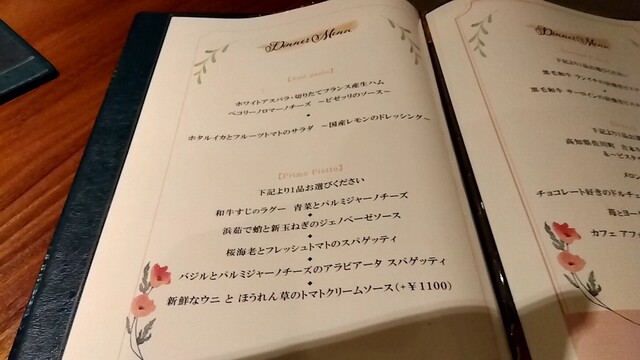 Dinner Menu
ホワイトアスパラ・切りたてフランス産生ハム
ペコリーノロマーノチーズ ～ピゼッリのソース～
ホタルイカとフルーツトマトのサラダ ～国産レモンのドレッシング～
【Primo Piatto】
下記より1品お選びください
和牛すじのラグー 青菜とパルミジャーノチーズ
浜茹で蛸と新玉ねぎのジェノベーゼソース
桜海老とフレッシュトマトのスパゲッティ
バジルとパルミジャーノチーズのアラビアータ スパゲッティ
新鮮なウニ と ほうれん草のトマトクリームソース(+￥1100)
Dinner Menu
下記より1品お選び
黒毛和牛
黒毛和牛 サーロイン
下記より1品
高知県佐川町
チョコレート好きのドルチェ
苺とヨー
カフェ アフ